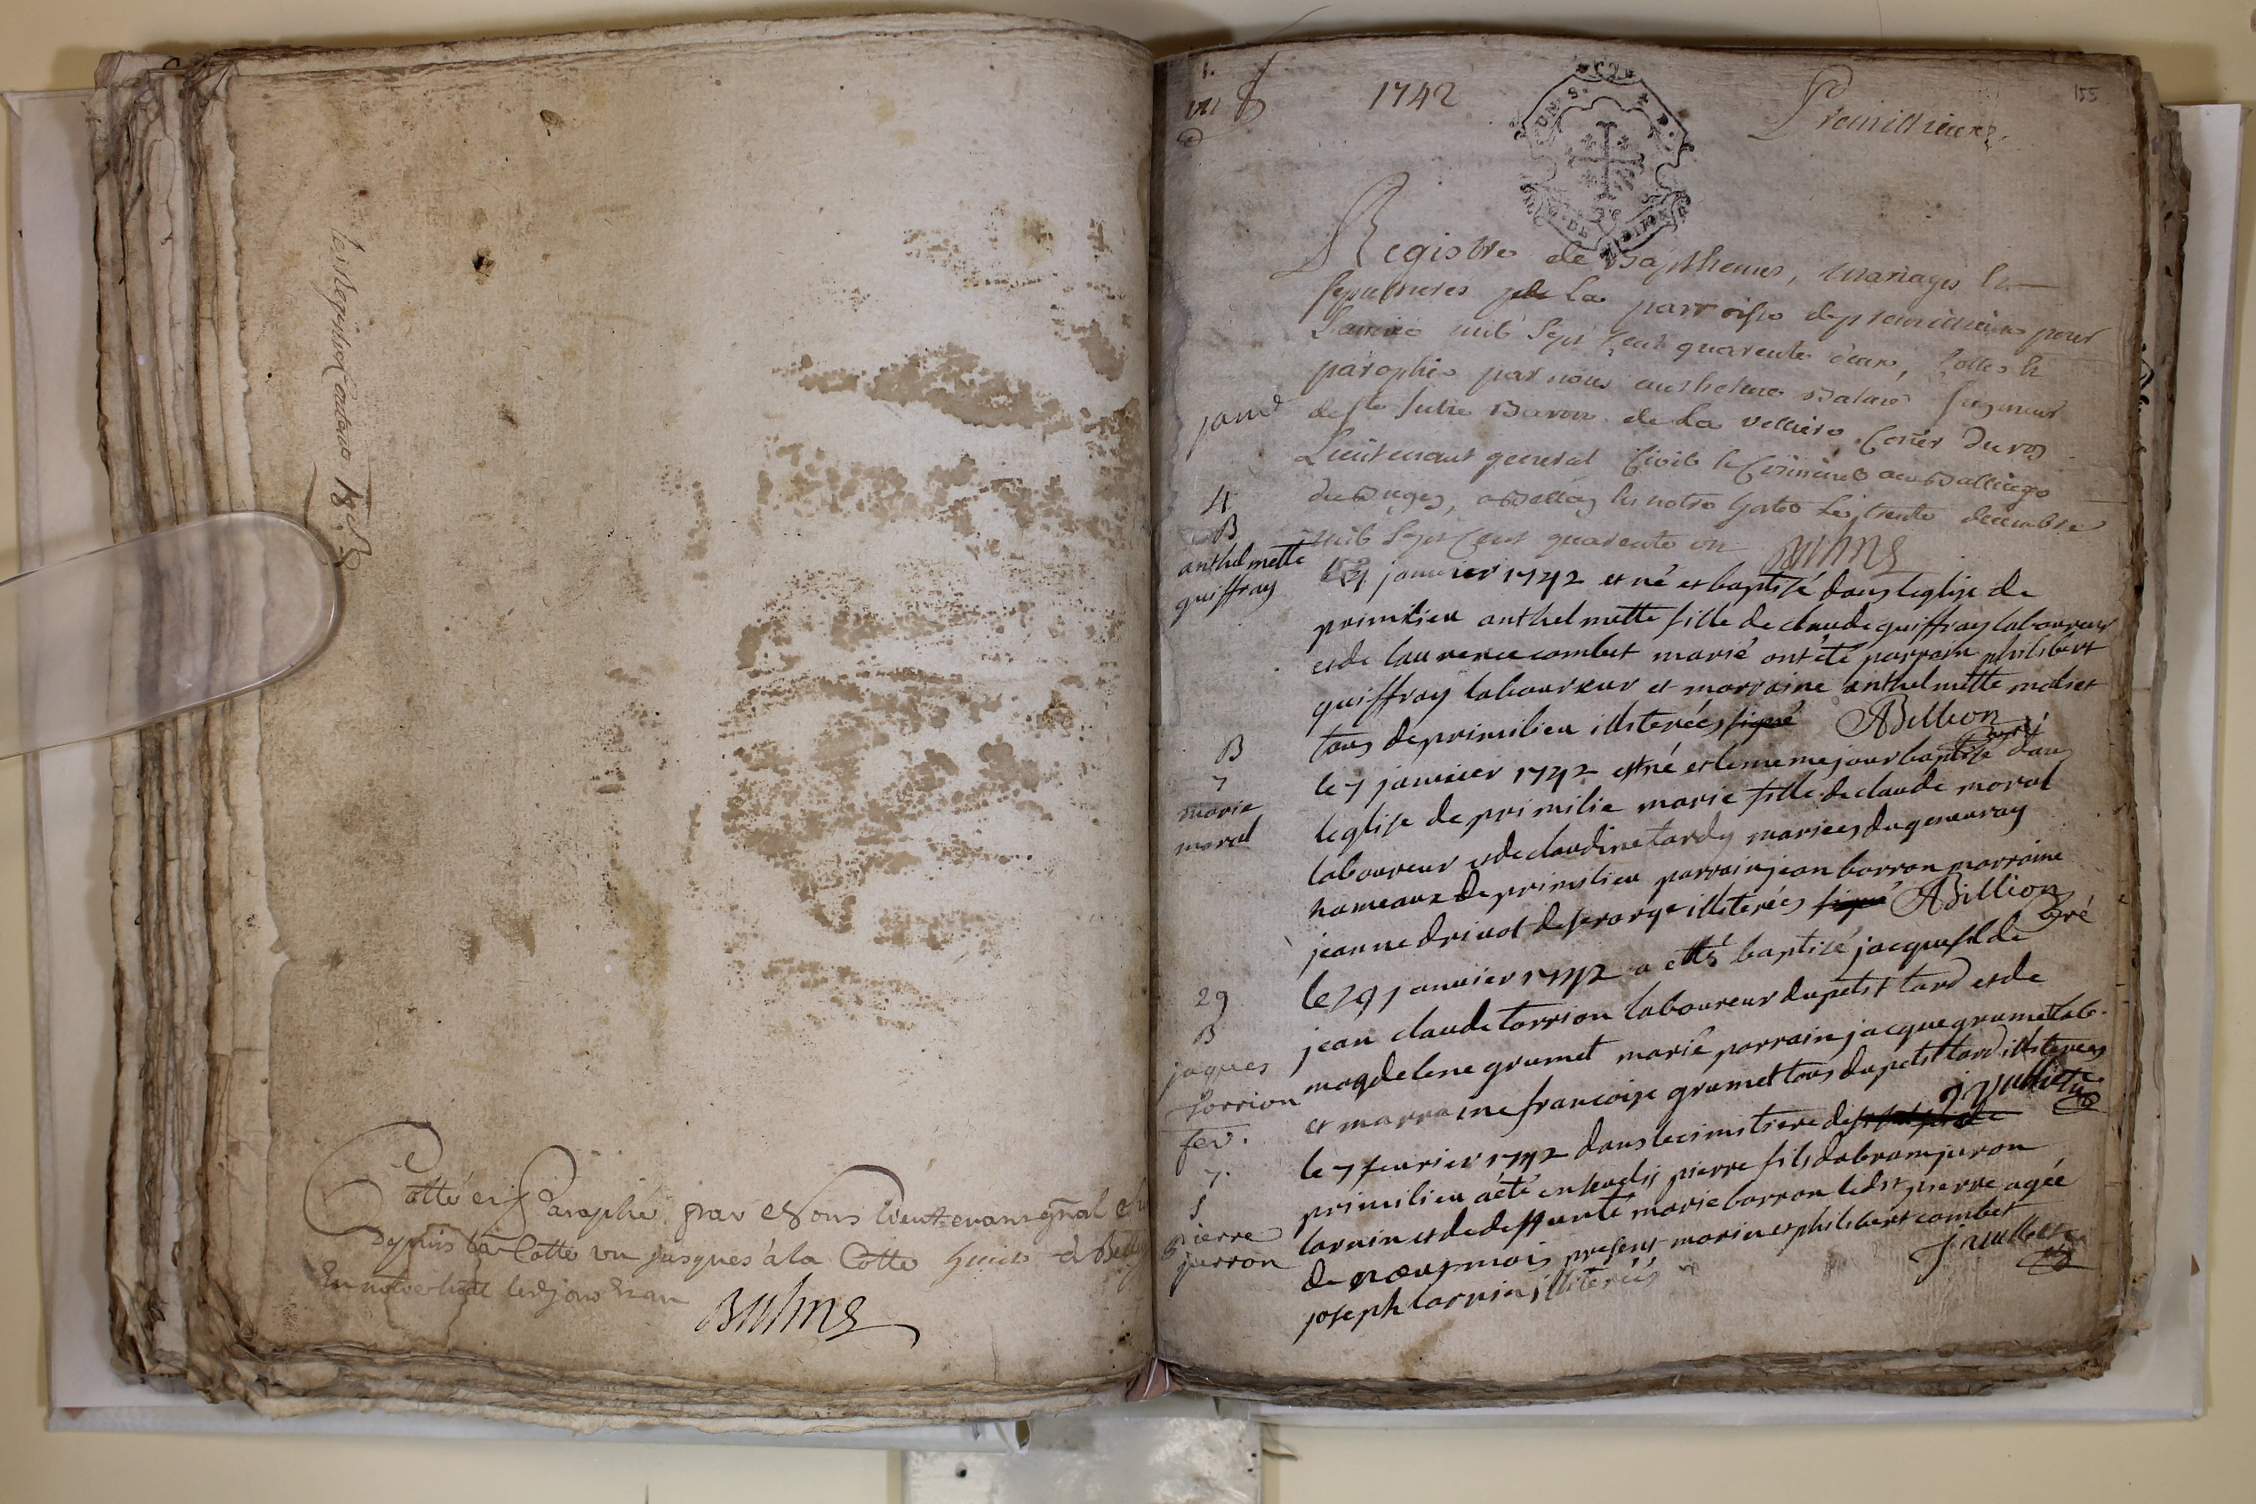 Cotté et Paraphé par Nous Lieutenant gñal
depuis la Cotte un jusques a la Cotte huit à
En notre hotel led. jour et an
Balme
155
1742
Premillieux
Registre de Bapthemes, Mariages et
sepultures de La parroisse de premillieux pour
L'année mil sept cent quarente deux, Cottes et
paraphés par nous anthelme Balme Seigneur
de Ste Julie Baron de La velliere Coner du roy
Lieutenant general Civil et Criminel au Balliage
du Bugey, a Belley en notre hotel Le trente decembre
mil sept cent quarente un Balme
janv
4
B
anthelmette
guiffray
4 janvier 1742 et né et baptisé dans leglise de
primilieu anthelmette fille de claude guiffray laboureur
et de laurence combet marié ont été parrain philibert
guiffray laboureur et marraine anthelmette
tous de primilieu illiterées signé ABillion
curé
B
7
marie
moral
le 7 janvier 1742 est né et le meme jour baptisé dans
leglise de primilie marie fille de claude moral
laboureur et de claudine tardy mariees du genevray
hameaux de primilieu parrain jean borron marraine
jeanne drivot de illiterées signé ABillion
curé
29
B
jaques
torrion
le 29 janvier 1742 a etté baptisé jacque fil de
jean claude torrion laboureur du petit tard et de
magdelene grumet marié parrain jacque grumet lab.
et marraine françoise grumet tous du petit tard illiterees
jvulliet
fev.
7.
S
pierre
jurron
le 7 fevrier 1742 dans le cimitiere de
primilieu a été ensevelis pierre fils dabram juron
larnin et de deffunte marie borron ledit pierre agée
de neuf mois present marin et philibert combet
joseph larnin illiterés jvulliet